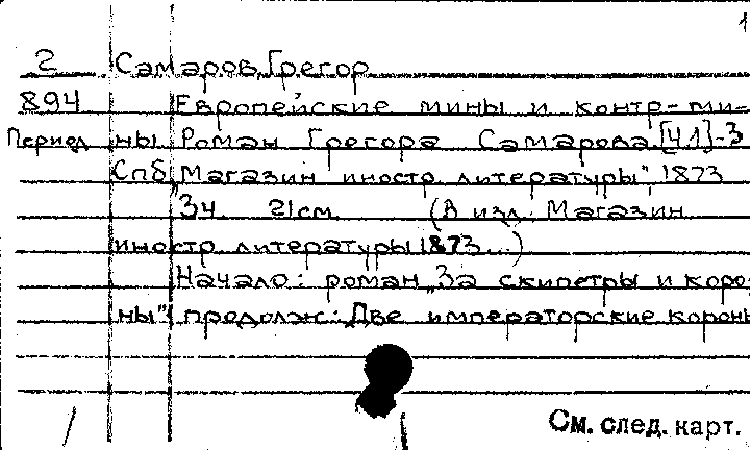 1
2 Самаров, Грегор
894 Европейские мины и контр-ми-
Период ны Роман Грегора Самарова [Ч.1]-3
Спб „Магазин иностр литературы", 1873
3ч 21см. (В изд. Магазин
иностр литературы 1873...)
Начало: роман „За скипетры и коро-
ны" продолж: Две императорские короны
См. след. карт.